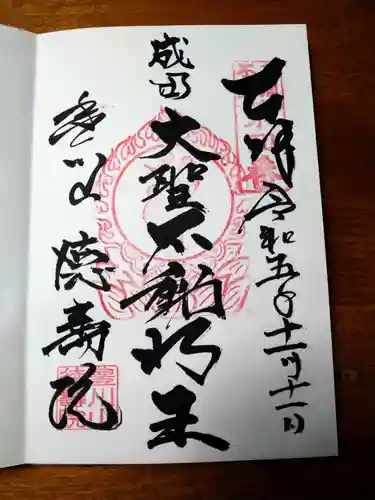 奉拝 令和五年十一月十一日
成田
大聖不動明王
豊川山
徳寿院